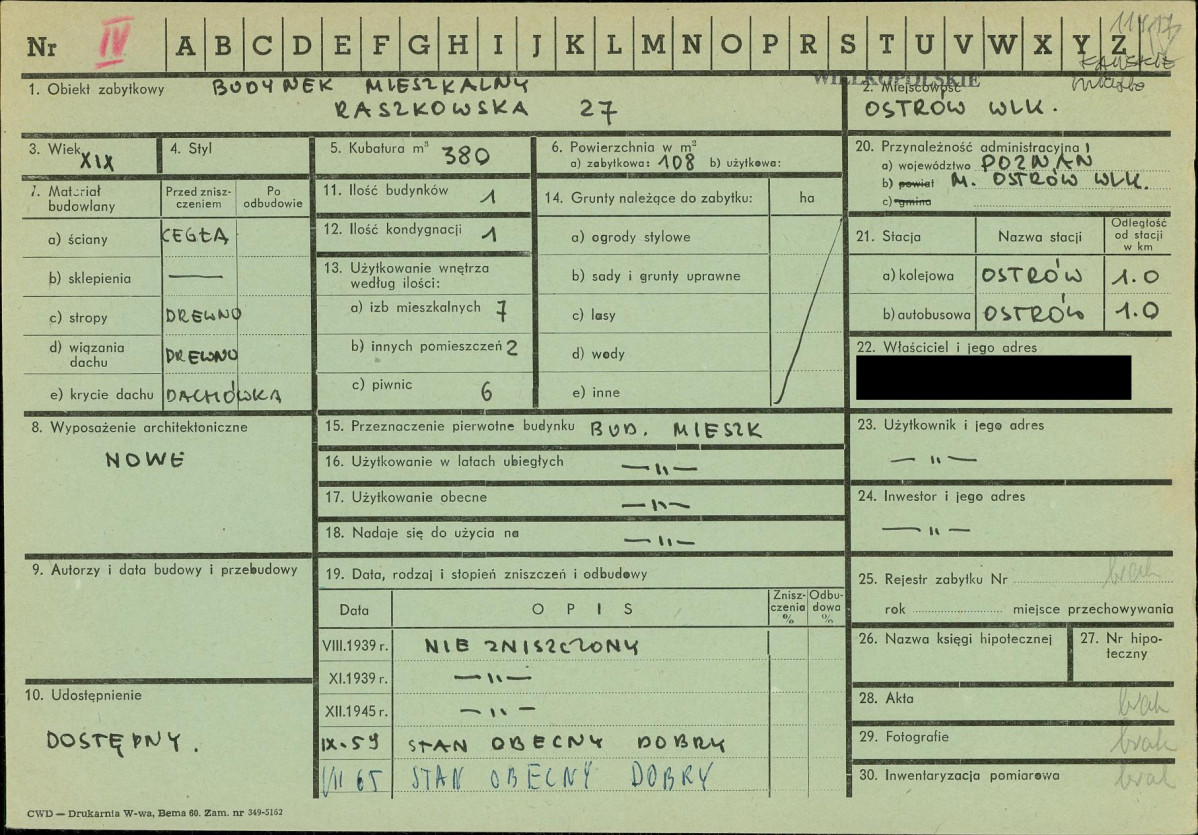 Nr IV A B C D E F G H I J K L M N O P R S T U V W X Y Z
WIELKOPOLSKIE
miasto
1. Obiekt zabytkowy BUDYNEK MIESZKALNY
RASZKOWSKA 27
2. Miejscowość
OSTRÓW WLK.
3. Wiek XIX
4. Styl
5. Kubatura m³ 380
6. Powierzchnia w m²
a) zabytkowa: 108 b) użytkowa:
20. Przynależność administracyjna
a) województwo POZNAŃ
b) powiat M. OSTRÓW WLK.
c) gmina
7. Materiał budowlany
Przed zniszczeniem
Po odbudowie
a) ściany CEGŁA
b) sklepienia —
c) stropy DREWNO
d) wiązania dachu DREWNO
e) krycie dachu DACHÓWKA
11. Ilość budynków 1
12. Ilość kondygnacji 1
13. Użytkowanie wnętrza
według ilości:
a) izb mieszkalnych 7
b) innych pomieszczeń 2
c) piwnic 6
14. Grunty należące do zabytku: ha
a) ogrody stylowe
b) sady i grunty uprawne
c) lasy
d) wody
e) inne
21. Stacja
Nazwa stacji
Odległość od stacji w km
a) kolejowa OSTRÓW 1.0
b) autobusowa OSTRÓW 1.0
22. Właściciel i jego adres
8. Wyposażenie architektoniczne
NOWE
15. Przeznaczenie pierwotne budynku BUD. MIESZK
16. Użytkowanie w latach ubiegłych —"—
17. Użytkowanie obecne —"—
18. Nadaje się do użycia na —"—
23. Użytkownik i jego adres
—"—
24. Inwestor i jego adres
—"—
9. Autorzy i data budowy i przebudowy
19. Data, rodzaj i stopień zniszczeń i odbudowy
Data
OPIS
Zniszczenia %
Odbudowa %
VIII.1939 r. NIE ZNISZCZONY
XI.1939 r. —"—
XII.1945 r. —"—
IX-59 STAN OBECNY DOBRY
VII 65 STAN OBECNY DOBRY
25. Rejestr zabytku Nr brak
rok miejsce przechowywania
26. Nazwa księgi hipotecznej
27. Nr hipoteczny
10. Udostępnienie
DOSTĘPNY.
28. Akta brak
29. Fotografie brak
30. Inwentaryzacja pomiarowa brak
CWD — Drukarnia W-wa, Bema 60. Zam. nr 349-5162